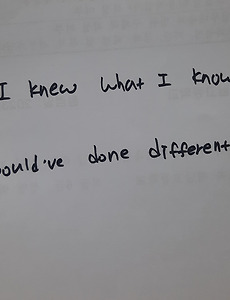 I knew what I know
ould've done different